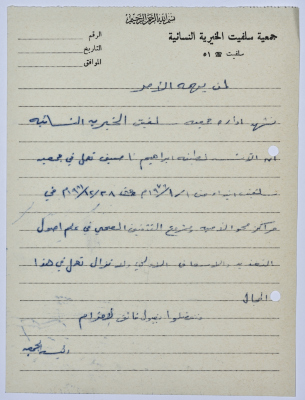 بسم الله الرحمن الرحيم
جمعية سلفيت الخيرية النسائية
سلفيت ☎ ٥١
الرقم
التاريخ
الموافق
لمن يهمه الأمر
تشهد ادارة جمعية سلفيت الخيرية النسائية
ان الآنسة لطفية ابراهيم ناصيف تعمل في جمعية
سلفيت ابتداء من حتى في
مراكز محو الأمية ومشروع التثقيف الصحي في علم اصول
التغذية والاسعاف الأولي ولا تزال تعمل في هذا
المجال
وتفضلوا بقبول فائق الاحترام
رئيسة الجمعية